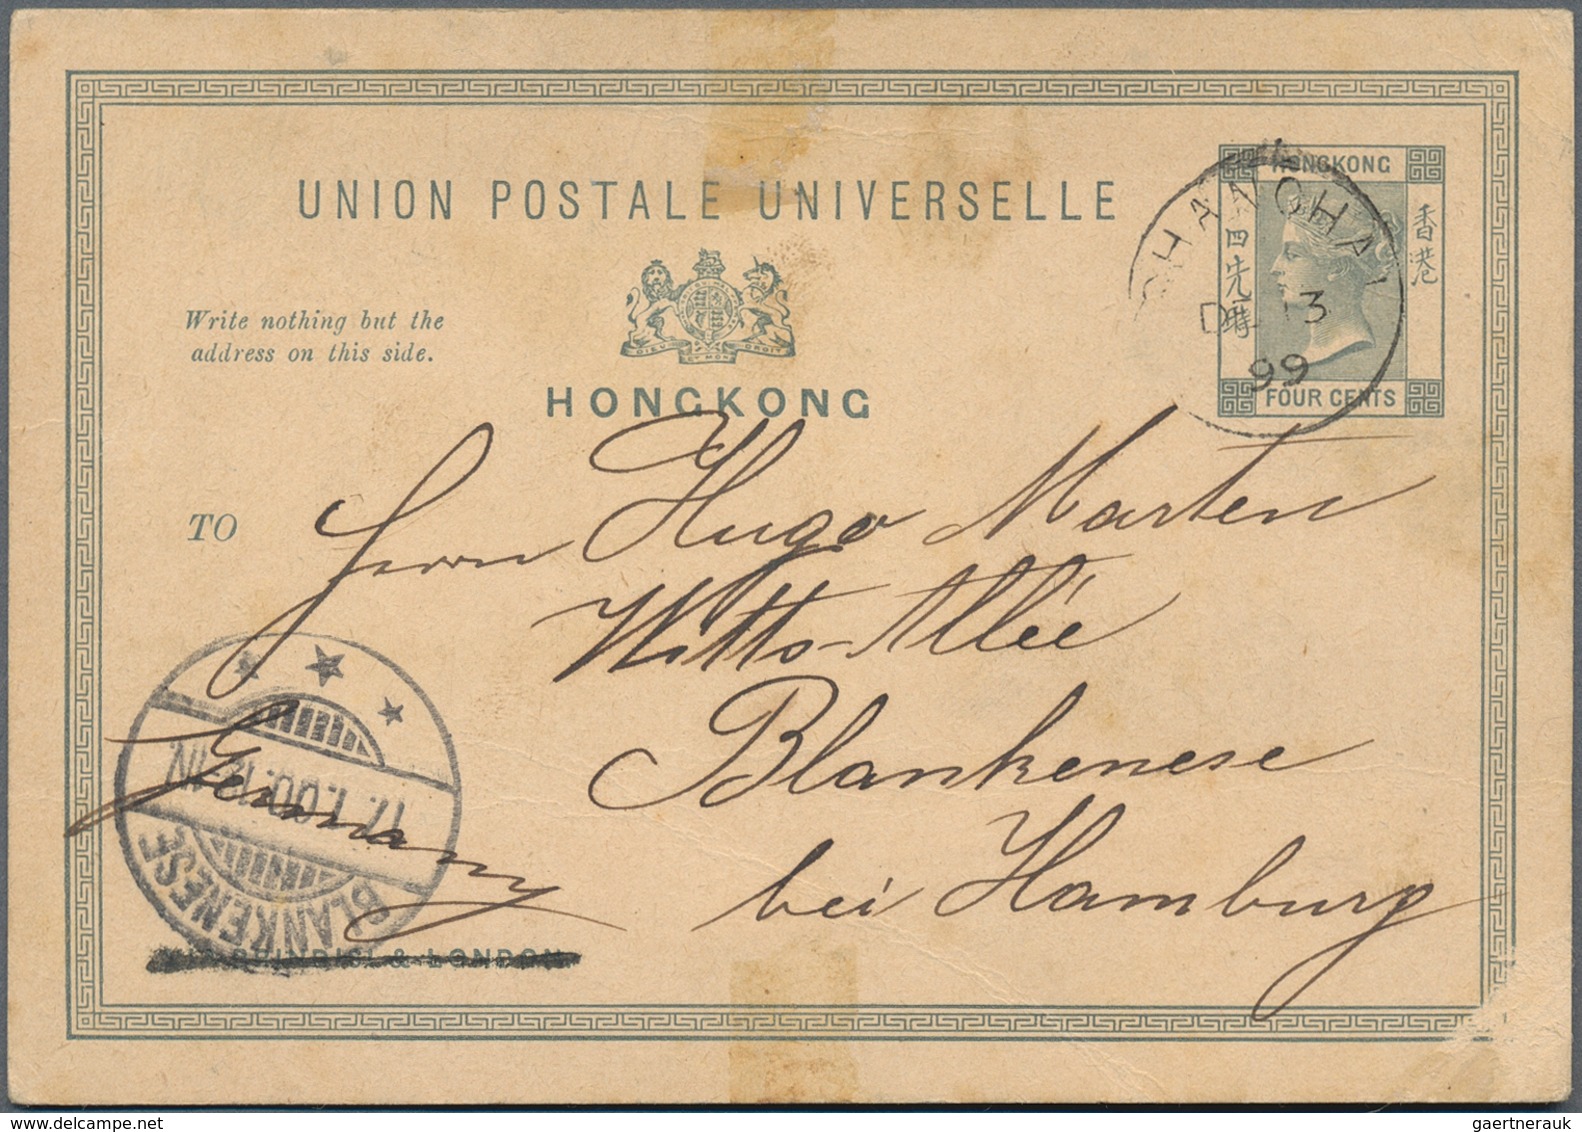 UNION POSTALE UNIVERSELLE
HONGKONG
香港
四先
FOUR CENTS
SHANGHAI
DE 13
99
Write nothing but the
address on this side.
DIEU ET MON DROIT
HONGKONG
TO
Herrn Hugo Marten
Witts-Allée
Blankenese
bei Hamburg
Germany
17.1.00.
BLANKENESE
VIA BRINDISI & LONDON
gaertnerauk
delcampe.net